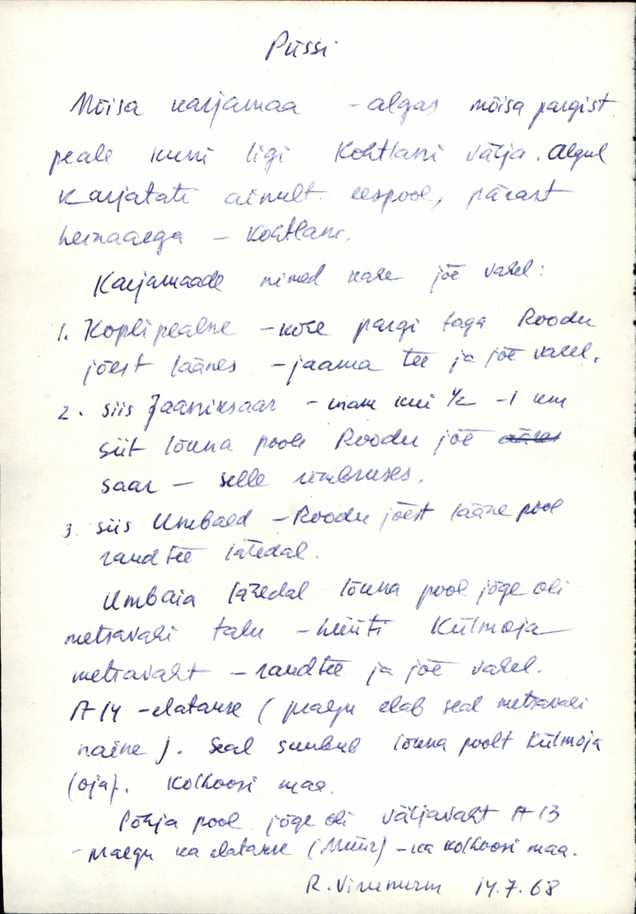 Püssi
Mõisa karjamaa - algas mõisa pargist
peale kuni ligi Kohtlani välja. Algul
karjatati ainult eespool, pärast
heinaaega - Kohtlani.
Karjamaade nimed kahe jõe vahel:
1. Koplipealne - kohe pargi taga Roodu
jõest läänes - jaama tee ja jõe vahel.
2. siis Jaaniksaar - enam kui 1/2 - 1 km
siit lõuna poole Roodu jõe
saar - selle ümbruses.
3. siis Umbaed - Roodu jõest lääne pool
raudtee lähedal.
Umbaia lähedal lõuna pool jõge oli
metsavahi talu - hüüti Külmoja
metsavaht - raudtee ja jõe vahel.
A 14 - elatakse (praegu elab seal metsavahi
naine). Seal suubub lõuna poolt Külmoja
(oja). Kolhoosi maa.
Põhja pool jõge oli väljavaht A 13
- praegu ka elatakse (Müür) - ka kolhoosi maa.
R. Virunurm 14.7.68